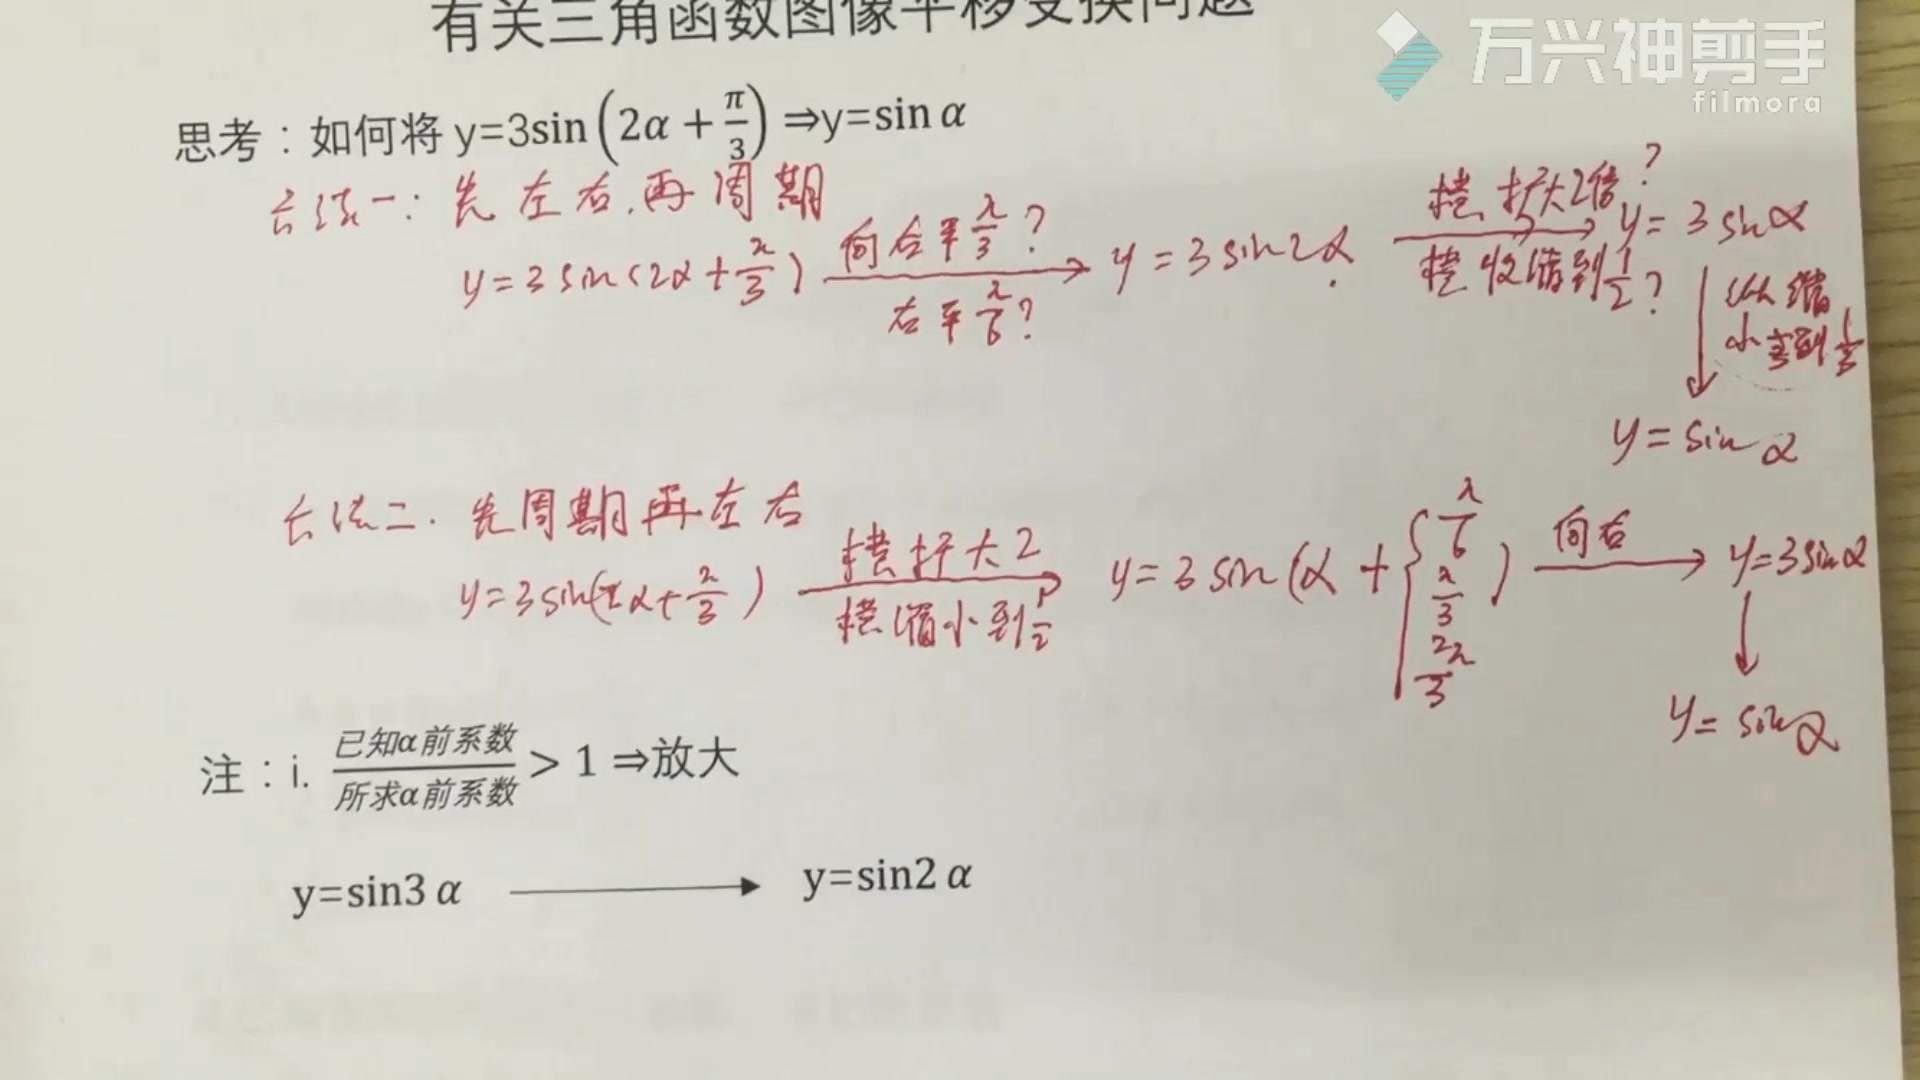 有关三角函数图像平移变换问题
万兴神剪手
filmora
思考：如何将 y=3sin(2α + π/3) ⇒y=sin α
方法一：先左右，再周期
y = 3 sin(2α + π/3) 向右平 π/3 ? 右平 π/6 ? y = 3 sin2α 横扩大2倍? 横收缩到 1/2 ? y = 3 sinα
纵缩
小到 1/3
y = sin α
方法二. 先周期再左右
y = 3 sin(2α + π/3) 横扩大2 横缩小到 1/2 y = 3 sin(α + { π/6 π/3 2π/3 ) 向右 y = 3 sinα
y = sin α
注：i. 已知α前系数/所求α前系数 > 1 ⇒放大
y=sin3 α → y=sin2 α